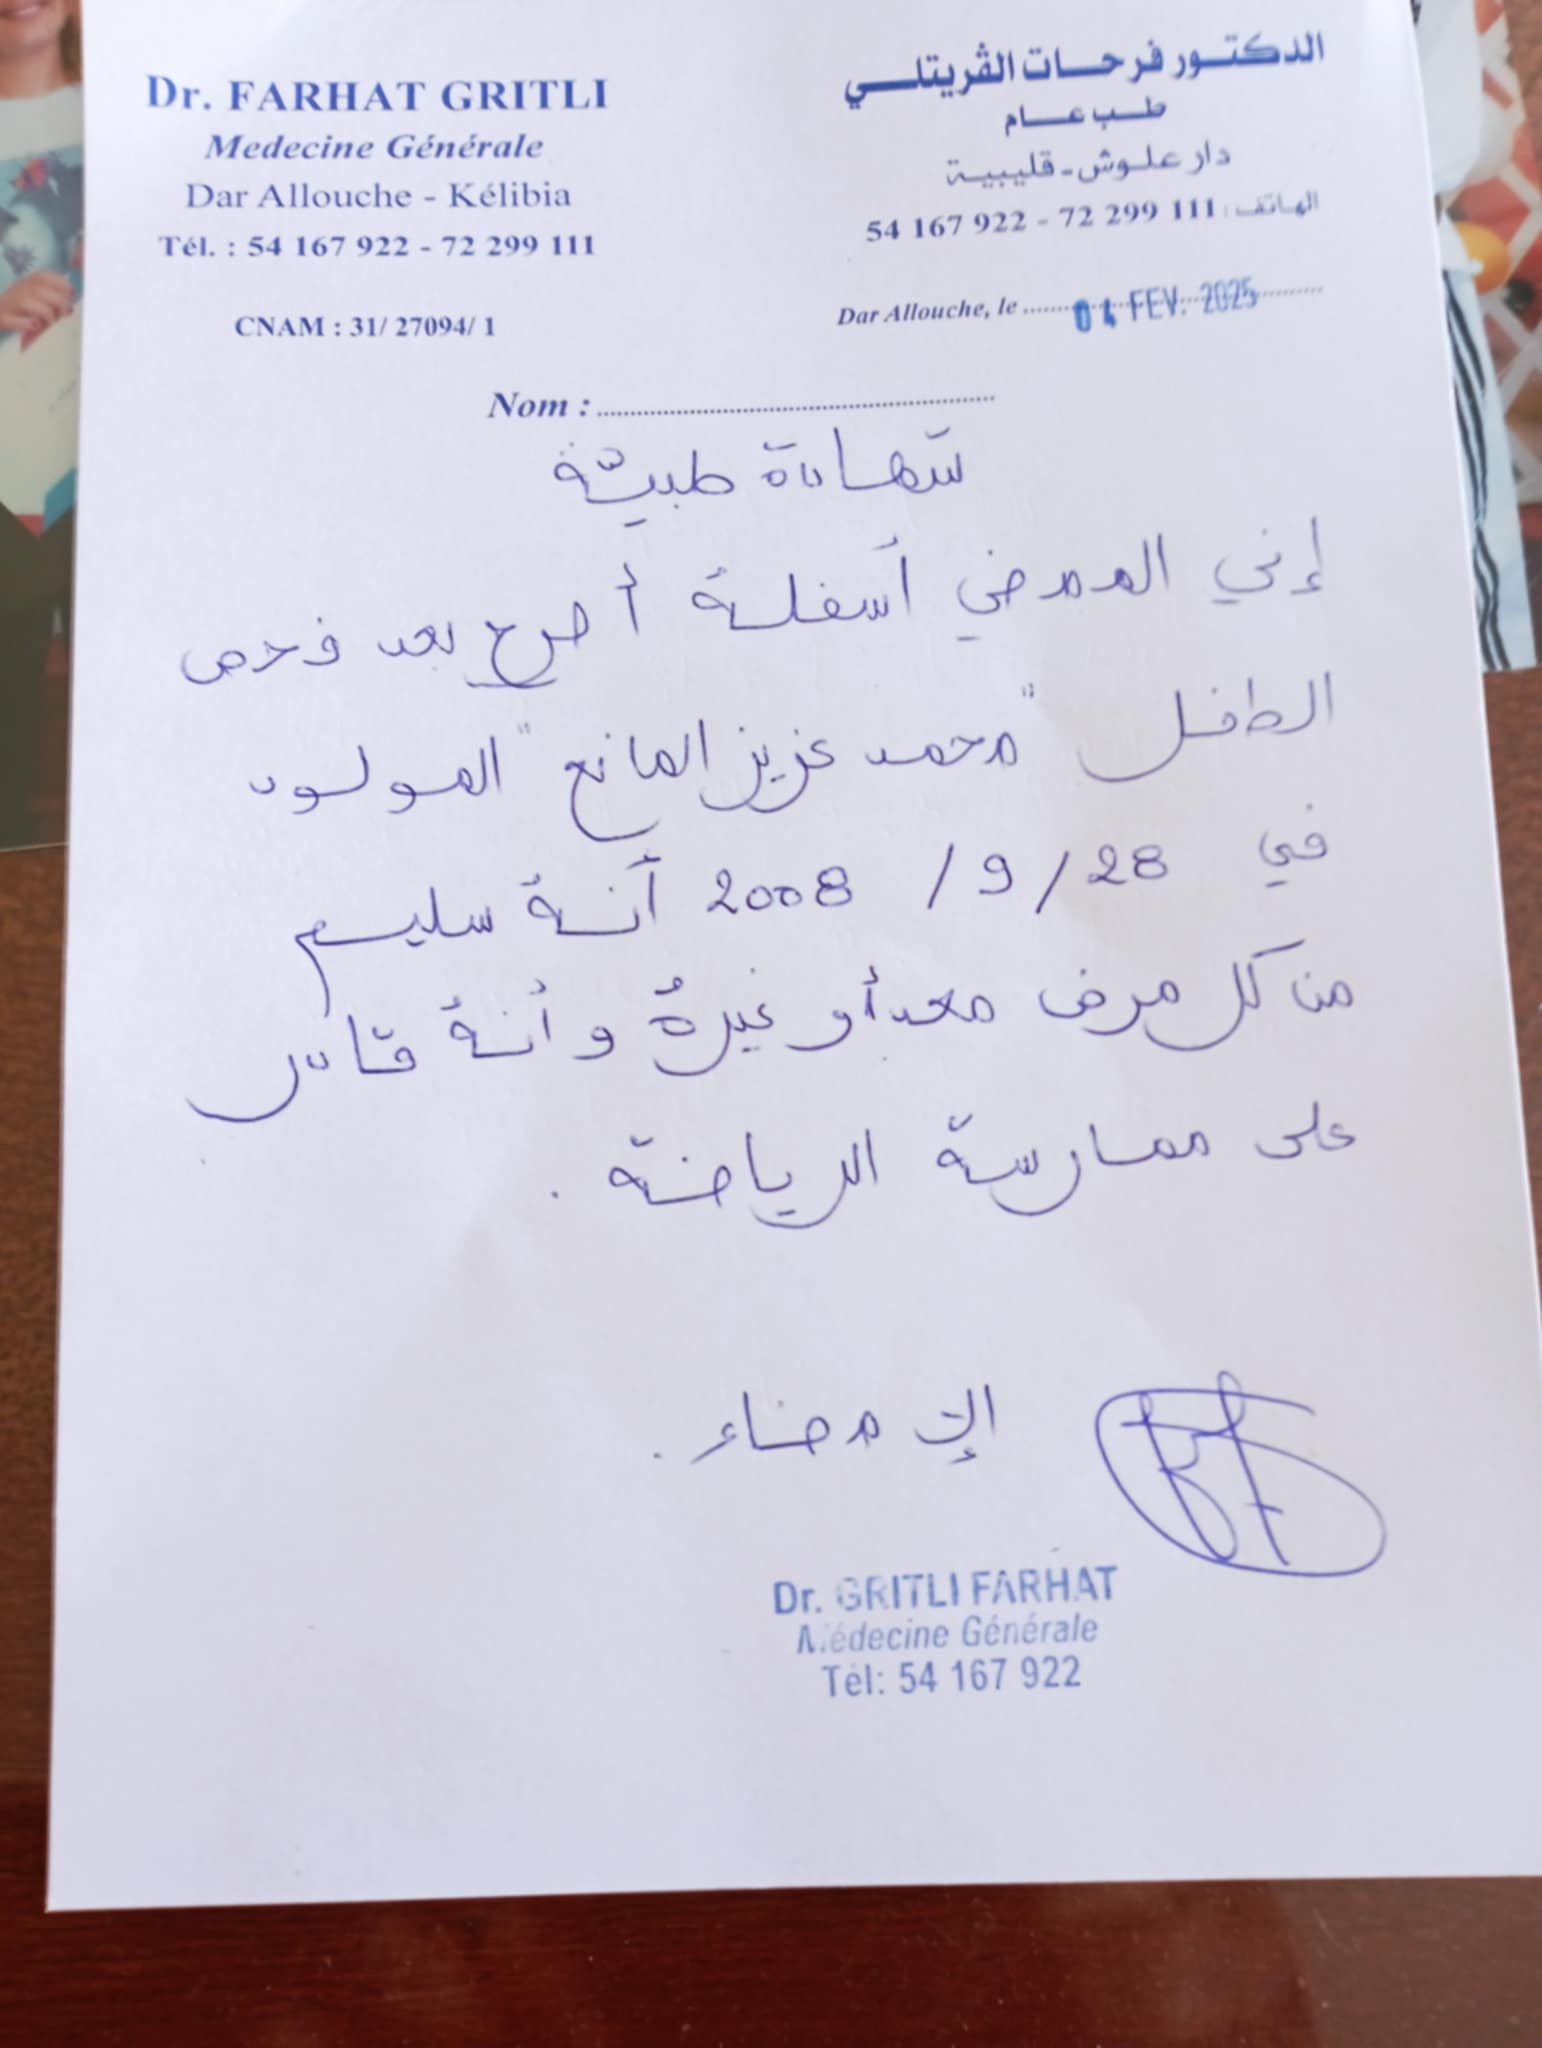 Dr. FARHAT GRITLI
Medecine Générale
Dar Allouche - Kélibia
Tél. : 54 167 922 - 72 299 111
CNAM : 31/ 27094/ 1
الدكتور فرحات الڨريتلي
طب عام
دار علوش - قليبية
الهاتف : 54 167 922 - 72 299 111
Dar Allouche, le 04 FEV. 2025
Nom :
شهادة طبيّة
إني الممضي أسفله أصرح بعد فحص
الطفل "محمد عزيز المانع" المولود
في 28/ 9/ 2008 أنه سليم
من كل مرض معد أو غيره وأنه قادر
على ممارسة الرياضة .
الإمضاء .
Dr. GRITLI FARHAT
Médecine Générale
Tél: 54 167 922